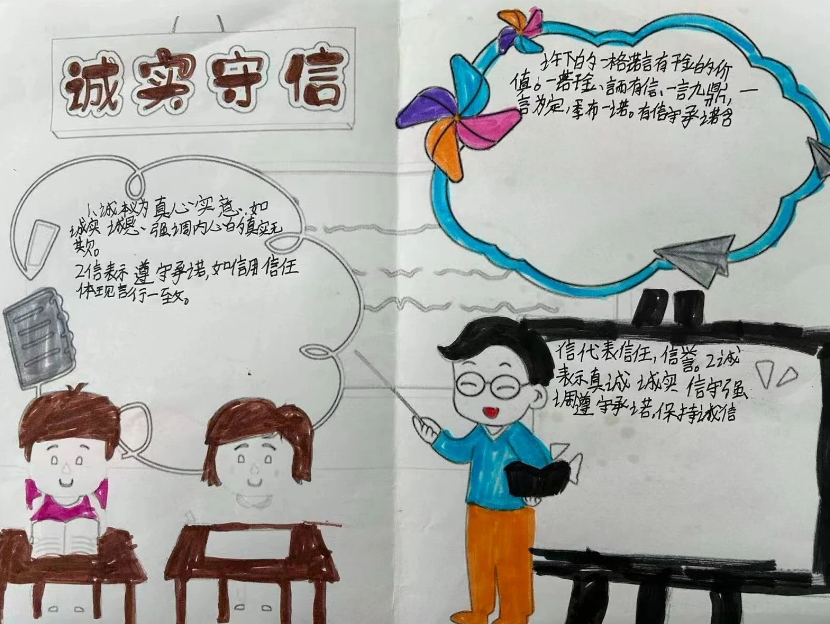 诚实守信
1、诚本义为真心实意,如
诚实 诚恳、强调内心的真实无
欺。
2信表示遵守承诺,如信用信任
体现言行一致。
许下的每一格诺言有千金的价
值。一诺千金、言而有信、一言九鼎,一
言为定,季布一诺。有信守承诺含
信代表信任,信誉。2诚
表示真诚 诚实 信守强
调遵守承诺,保持诚信